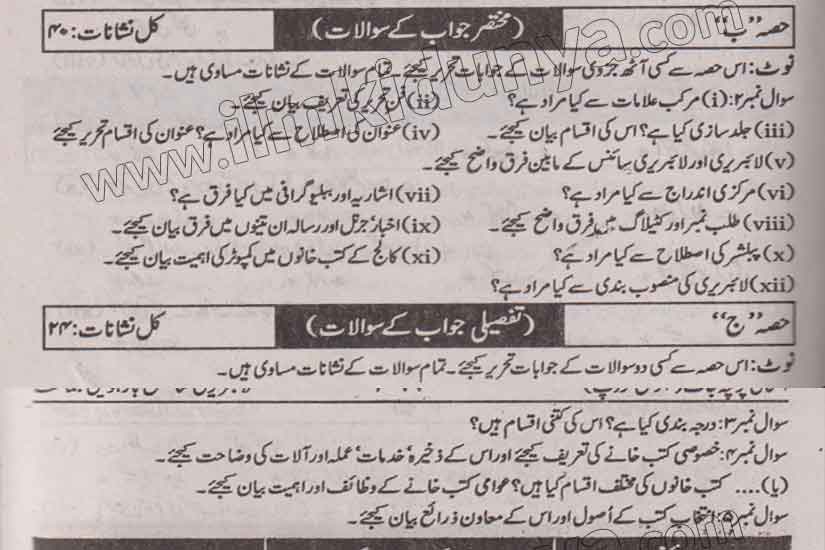 حصہ ”ب“ (مختصر جواب کے سوالات) کل نشانات: ۴۰
نوٹ: اس حصہ سے کسی آٹھ جزوی سوالات کے جوابات تحریر کیجئے۔ تمام سوالات کے نشانات مساوی ہیں۔
سوال نمبر ۲: (i) مرکب علامات سے کیا مراد ہے؟ (ii) فن تحریر کی تعریف بیان کیجئے۔
(iii) جلد سازی کیا ہے؟ اس کی اقسام بیان کیجئے۔ (iv) عنوان کی اصطلاح سے کیا مراد ہے؟ عنوان کی اقسام تحریر کیجئے
(v) لائبریری اور لائبریری سائنس کے مابین فرق واضح کیجئے۔
(vi) مرکزی اندراج سے کیا مراد ہے؟ (vii) اشاریہ اور ببلیوگرافی میں کیا فرق ہے؟
(viii) طلب نمبر اور کٹیلاگ میں فرق واضح کیجئے۔ (ix) اخبار، جرنل اور رسالہ ان تینوں میں فرق بیان کیجئے۔
(x) پبلشر کی اصطلاح سے کیا مراد ہے؟ (xi) کالج کے کتب خانوں میں کمپیوٹر کی اہمیت بیان کیجئے۔
(xii) لائبریری کی منصوب بندی سے کیا مراد ہے؟
حصہ ”ج“ (تفصیلی جواب کے سوالات) کل نشانات: ۲۴
نوٹ: اس حصہ سے کسی دو سوالات کے جوابات تحریر کیجئے۔ تمام سوالات کے نشانات مساوی ہیں۔
سوال نمبر ۳: درجہ بندی کیا ہے؟ اس کی کتنی اقسام ہیں؟
سوال نمبر ۴: خصوصی کتب خانے کی تعریف کیجئے اور اس کے ذخیرہ، خدمات، عملہ اور آلات کی وضاحت کیجئے۔
(یا).... کتب خانوں کی مختلف اقسام کیا ہیں؟ عوامی کتب خانے کے وظائف اور اہمیت بیان کیجئے۔
سوال نمبر ۵: انتخاب کتب کے اُصول اور اس کے معاون ذرائع بیان کیجئے۔
www.ilmkidunya.com